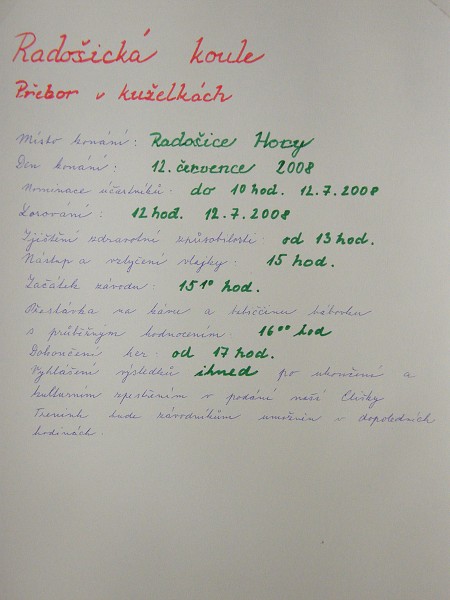 Radošická koule
Přebor v kuželkách
Místo konání: Radošice Hory
Den konání: 12. července 2008
Nominace účastníků: do 10 hod. 12.7.2008
Losování: 12 hod. 12.7.2008
Zjištění zdravotní způsobilosti: od 13 hod.
Nástup a vztyčení vlajky: 15 hod.
Začátek závodu: 15¹⁰ hod.
Přestávka na kávu a babovku
s průběžným hodnocením: 16⁰⁰ hod
Dokončení her: od 17 hod.
Vyhlášení výsledků ihned po ukončení a
kulturním zpestřením v podání naší Elišky
Trenink bude závodníkům umožněn v dopoledních
hodinách.